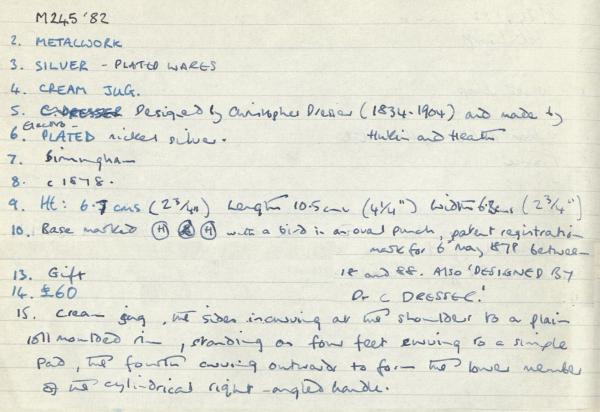 M245 '82
2. METALWORK
3. SILVER - PLATED WARES
4. CREAM JUG.
5. C. DRESSER Designed by Christopher Dresser (1834-1904) and made by
Hukin and Heath
6. Electro-PLATED nickel silver.
7. Birmingham
8. c 1878.
9. Ht: 6.7 cms (2 3/4") Length 10.5 cms (4 1/4") Width 6.8 cms (2 3/4")
10. Base marked H & H with a bird in an oval punch, patent registration
mark for 6 May 1878 between
18 and 88. Also 'DESIGNED BY
Dr C DRESSER'
13. Gift
14. £60
15. Cream jug, the sides incurving at the shoulder to a plain
roll moulded rim, standing on four feet curving to a simple
pad, the fourth curving outwards to form the lower member
of the cylindrical right-angled handle.